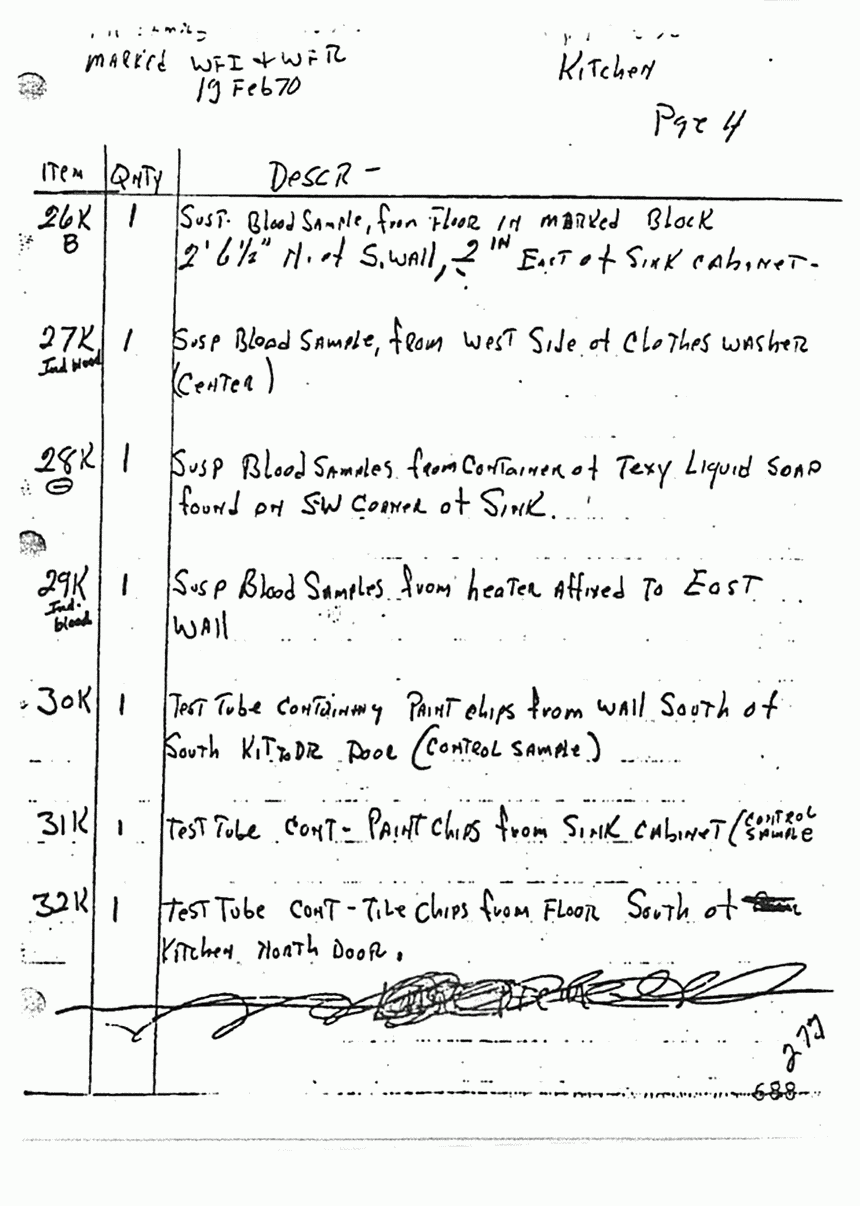 MARKEd WFI + WFR
19 Feb70
KITCHEN
Pge 4
ITEM QNTY DESCR -
26K 1 SUST. Blood SAmple, from FLOOR IN MARKEd Block
B 2' 6 1/2" N. of S. WALL, 2 IN EAST of SINK CAbINET-
27K 1 SUSP Blood SAmple, from WEST Side of CLOTHES WASHER
Ind blood (CENTER)
28K 1 SUSP Blood SAmples from CONTAINER of Texy Liquid SOAP
found ON SW CORNER of SINK.
29K 1 SUSP Blood SAmples from heATER Affixed To EAST
Ind. blood WAll
30K 1 TEST Tube CONTAining PAINT chips from WAll South of
South KIT to DR DOOR (CONTROL SAMPle)
31K 1 TEST Tube CONT - PAINT Chips from SINK CAbINET (CONTROL SAMPLE
32K 1 TEST Tube CONT - TILE Chips from FLOOR South of
KITCHEN NORTH DOOR.
277
688